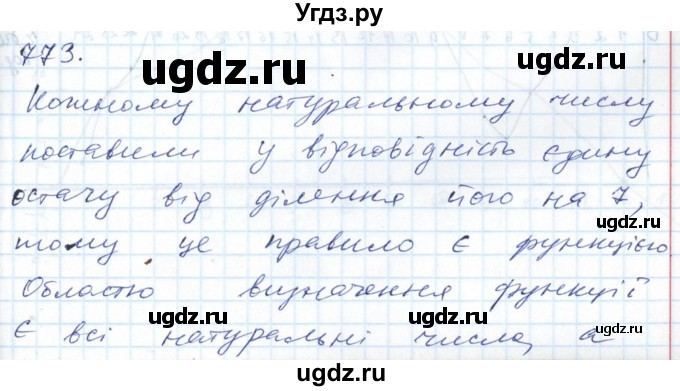 Угдз.ру
773.
ugdz.ru ugdz.ru
Кожному натуральному числу
ugdz.ru ugdz.ru
поставили у відповідність єдину
остачу від ділення його на 7,
ugdz.ru ugdz.ru
тому це правило є функцією
Областю визначення функції
ugdz.ru ugdz.ru
є всі натуральні числа, а
ugdz.ru ugdz.ru